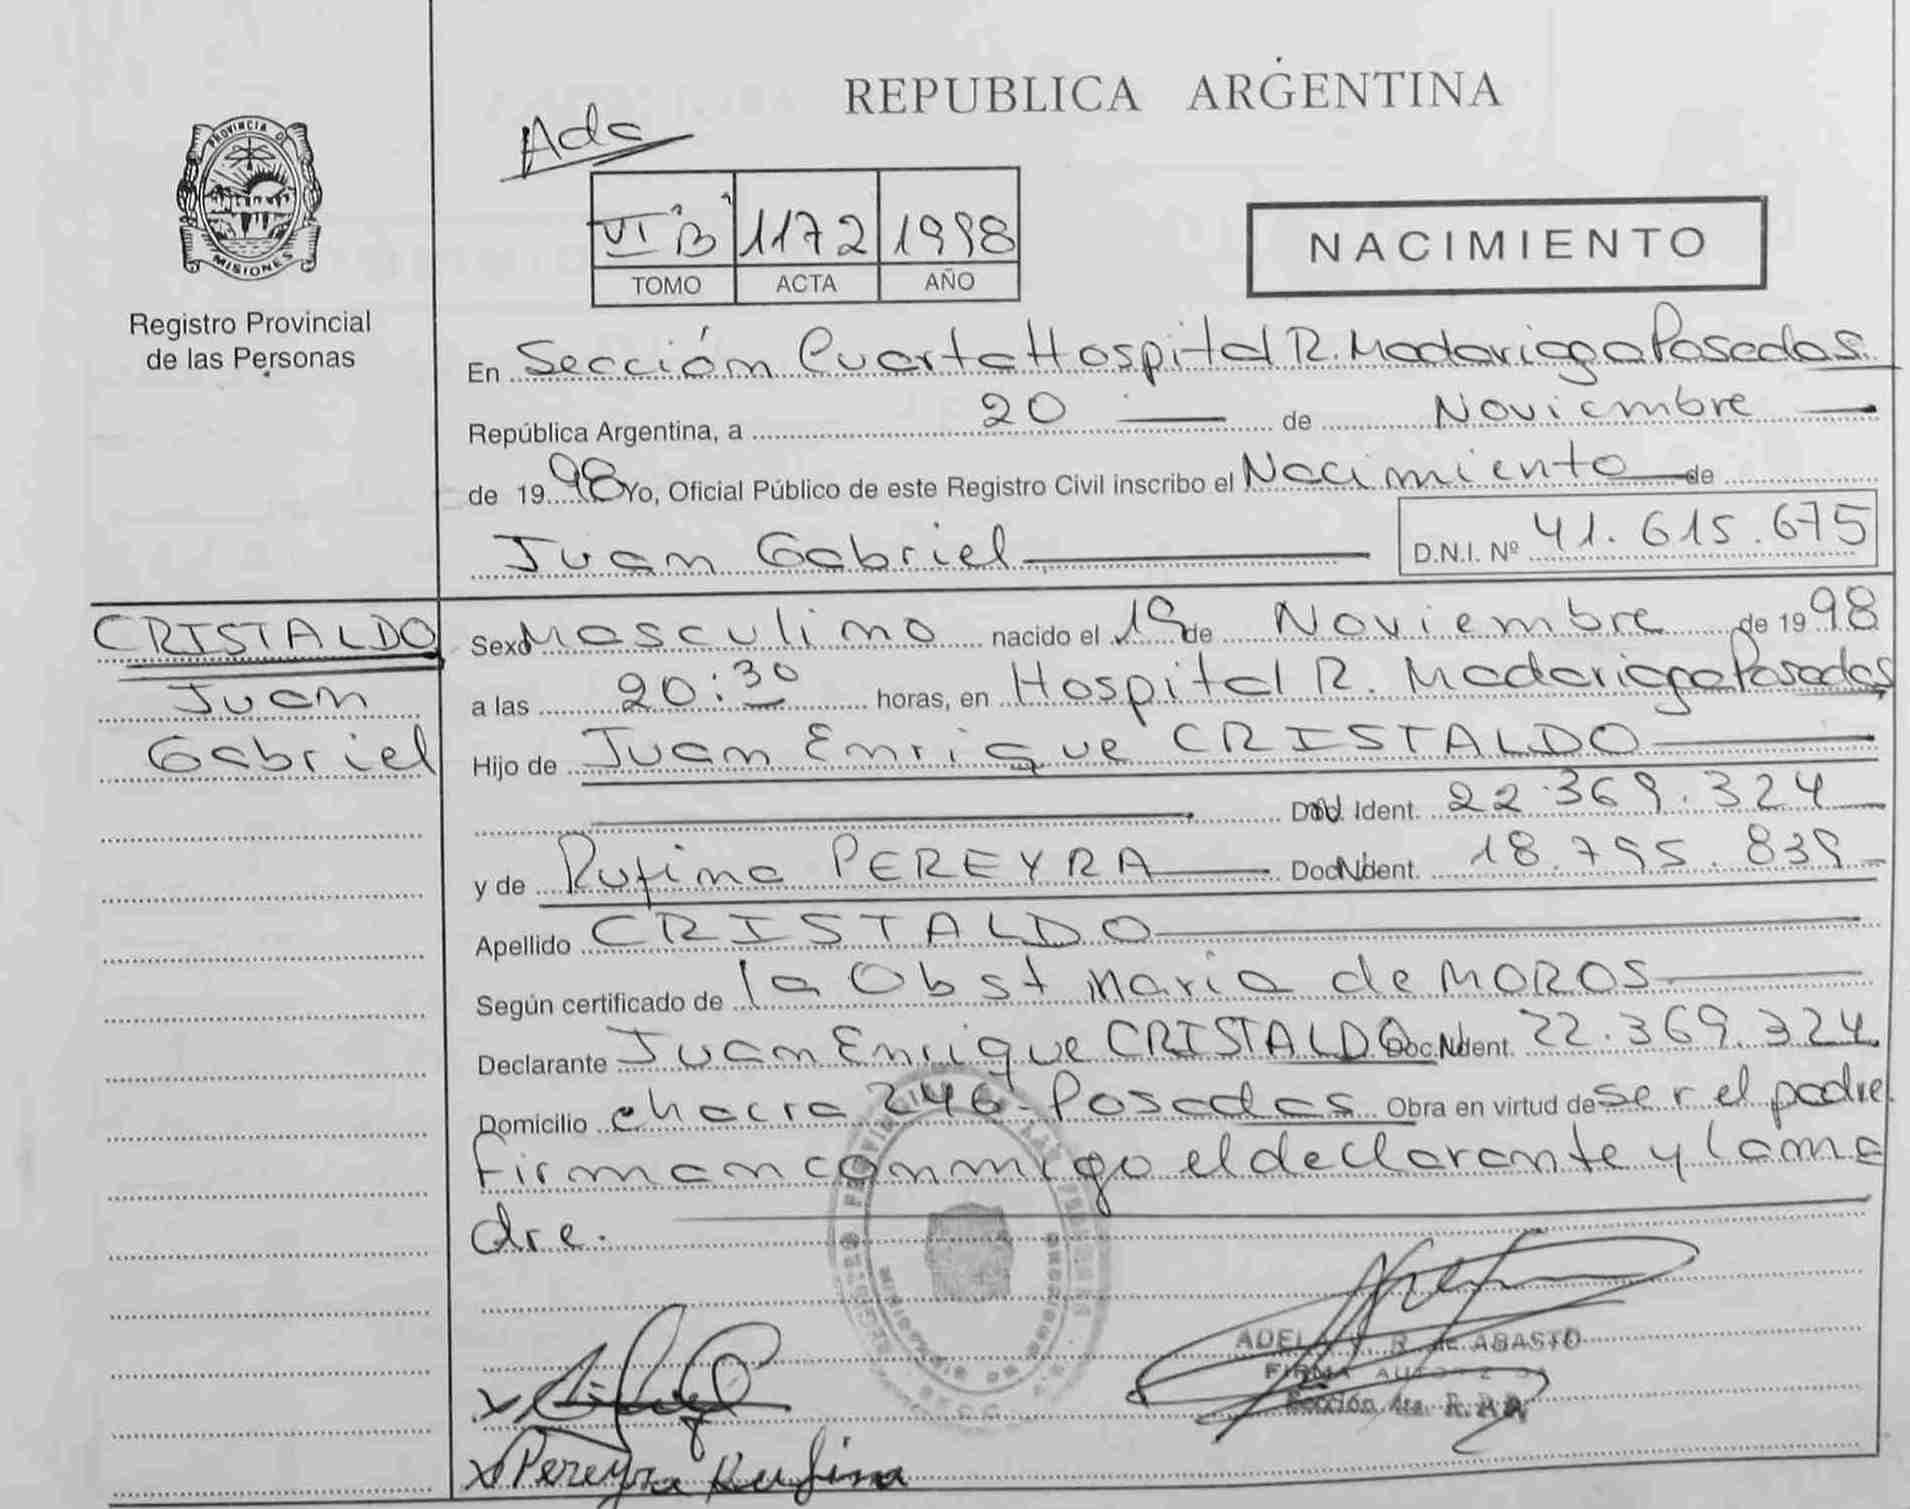 REPUBLICA ARGENTINA
PROVINCIA DE
MISIONES
Registro Provincial
de las Personas
VI B 1172 1998
TOMO ACTA AÑO
NACIMIENTO
En Sección Cuarta Hospital R. Madariaga Posadas
República Argentina, a 20 de Noviembre
de 1998 Yo, Oficial Público de este Registro Civil inscribo el Nacimiento de
Juan Gabriel D.N.I. Nº 41.615.675
CRISTALDO
Juan
Gabriel
Sexo Masculino nacido el 19 de Noviembre de 1998
a las 20:30 horas, en Hospital R. Madariaga Posadas
Hijo de Juan Enrique CRISTALDO
Ident. 22.369.324
y de Rufina PEREYRA Ident. 18.795.839
Apellido CRISTALDO
Según certificado de la Obst Maria de MOROS
Declarante Juan Enrique CRISTALDO Doc. Ident. 22.369.324
Domicilio chacra 246 - Posadas Obra en virtud de ser el padre
firman conmigo el declarante y la ma
dre.
ADELA R. de ABASTO
FIRMA AUTORIZADA
Sección 4ta. R.P.P.
Pereyra Rufina